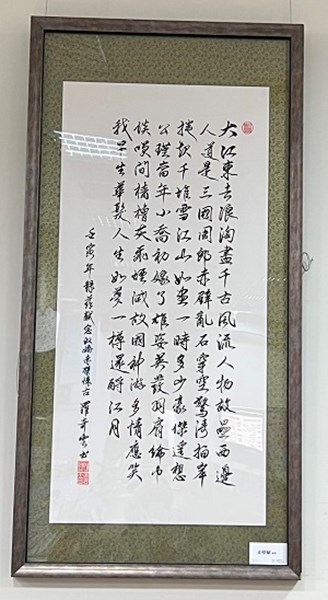 大江東去浪淘盡千古風流人物故壘西邊
人道是三國周郎赤壁亂石穿空驚濤拍岸
捲起千堆雪江山如畫一時多少豪傑遙想
公瑾當年小喬初嫁了雄姿英發羽扇綸巾
談笑間檣櫓灰飛煙滅故國神游多情應笑
我早生華髮人生如夢一樽還酹江月
壬寅年錄蘇軾念奴嬌赤壁懷古 書